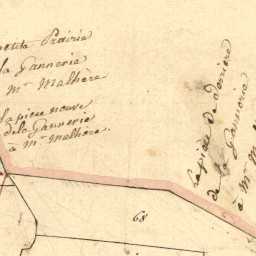 petite Prairie
de la Gannerie
à Mr Malhère
la piece neuve
de la Gannerie
à Mr Malhère.
la piece de derriere
de la Gannerie
à Mr
68